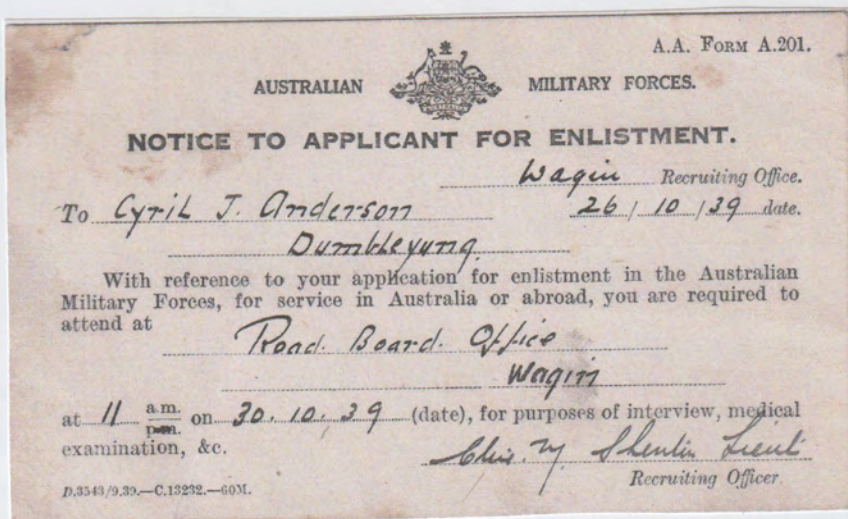 A.A. FORM A.201.
AUSTRALIAN MILITARY FORCES.
NOTICE TO APPLICANT FOR ENLISTMENT.
Wagin Recruiting Office.
To Cyril J. Anderson 26/10/39 date.
Dumbleyung.
With reference to your application for enlistment in the Australian
Military Forces, for service in Australia or abroad, you are required to
attend at
Road Board Office
Wagin
at 11 a.m. p.m. on 30.10.39 (date), for purposes of interview, medical
examination, &c.
Lieut
Recruiting Officer.
D.3543/9.39.—C.13232.—60M.